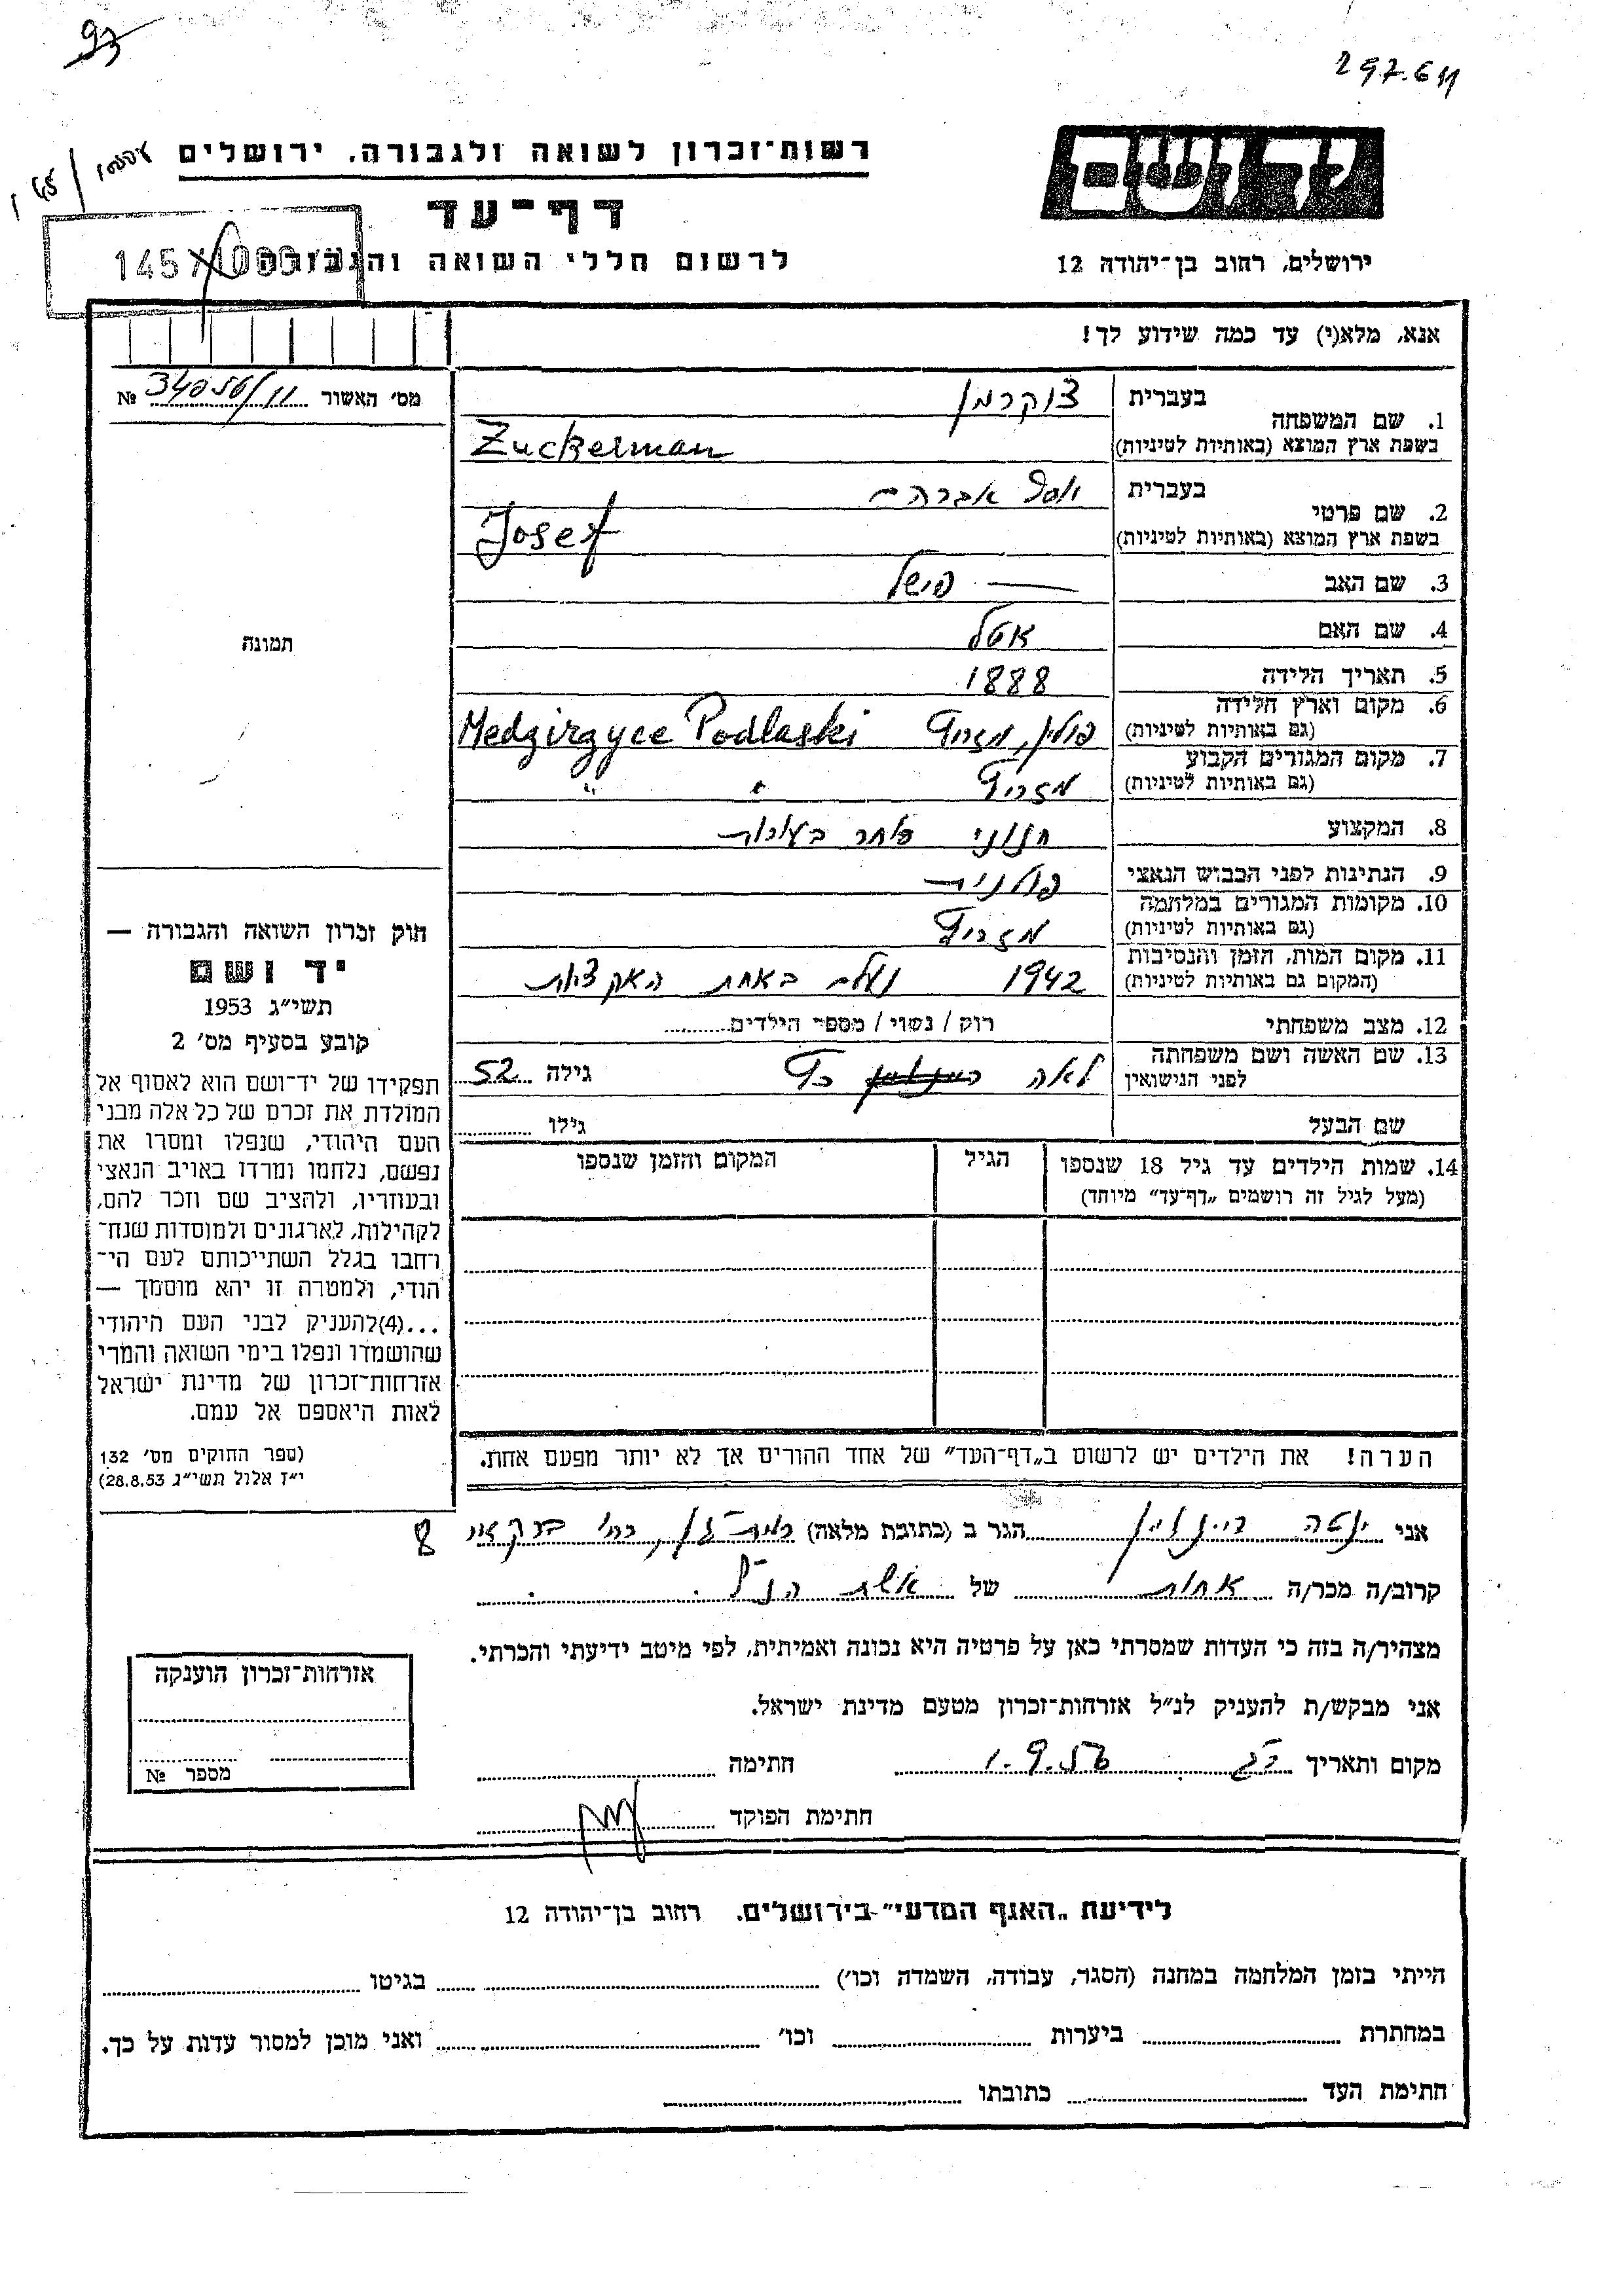 93
297.611
רשות־זכרון לשואה ולגבורה, ירושלים
יד ושם
דף־עד
לרשום חללי השואה והגבורה
ירושלים, רחוב בן־יהודה 12
אנא, מלא(י) עד כמה שידוע לך!
מס׳ האשור № 34056/11
1. שם המשפחה
בעברית צוקרמן
בשפת ארץ המוצא (באותיות לטיניות) Zuckerman
2. שם פרטי
בעברית יוסף אברהם
בשפת ארץ המוצא (באותיות לטיניות) Josef
3. שם האב — פישל
4. שם האם אטל
5. תאריך הלידה 1888
6. מקום וארץ הלידה
(גם באותיות לטיניות) פולין, מזריץ Medzirzyce Podlaski
7. מקום המגורים הקבוע
(גם באותיות לטיניות) מזריץ " "
8. המקצוע חנוני סחר בעורות
9. הנתינות לפני הכבוש הנאצי פולנית
10. מקומות המגורים במלחמה
(גם באותיות לטיניות) מזריץ
11. מקום המות, הזמן והנסיבות
(המקום גם באותיות לטיניות) 1942 נעלם באחת האקציות
12. מצב משפחתי רוק / נשוי / מספר הילדים
13. שם האשה ושם משפחתה
לפני הנישואין לאה כץ גילה 52
שם הבעל גילו
14. שמות הילדים עד גיל 18 שנספו הגיל המקום והזמן שנספו
(מעל לגיל זה רושמים „דף־עד״ מיוחד)
הערה! את הילדים יש לרשום ב„דף־העד״ של אחד ההורים אך לא יותר מפעם אחת.
תמונה
חוק זכרון השואה והגבורה —
יד ושם
תשי״ג 1953
קובע בסעיף מס׳ 2
תפקידו של יד־ושם הוא לאסוף אל
המולדת את זכרם של כל אלה מבני
העם היהודי, שנפלו ומסרו את
נפשם, נלחמו ומרדו באויב הנאצי
ובעוזריו, ולהציב שם וזכר להם,
לקהילות, לארגונים ולמוסדות שנח־
רחבו בגלל השתייכותם לעם הי־
הודי, ולמטרה זו יהא מוסמך —
...(4)להעניק לבני העם היהודי
שהושמדו ונפלו בימי השואה והמרי
אזרחות־זכרון של מדינת ישראל
לאות היאספם אל עמם.
(ספר החוקים מס׳ 132
י״ז אלול תשי״ג 28.8.53)
אני יטה הגר ב (כתובת מלאה) רמת־גן, רח׳ 8
קרוב/ה מכר/ה אחות של אשת הנ״ל.
מצהיר/ה בזה כי העדות שמסרתי כאן על פרטיה היא נכונה ואמיתית, לפי מיטב ידיעתי והכרתי.
אני מבקש/ת להעניק לנ״ל אזרחות־זכרון מטעם מדינת ישראל.
מקום ותאריך רג 1.9.56 חתימה
חתימת הפוקד
אזרחות־זכרון הוענקה
מספר №
לידיעת „האגף המדעי״ בירושלים. רחוב בן־יהודה 12
הייתי בזמן המלחמה במחנה (הסגר, עבודה, השמדה וכו׳) בגיטו
במחתרת ביערות וכו׳ ואני מוכן למסור עדות על כך.
חתימת העד כתובתו